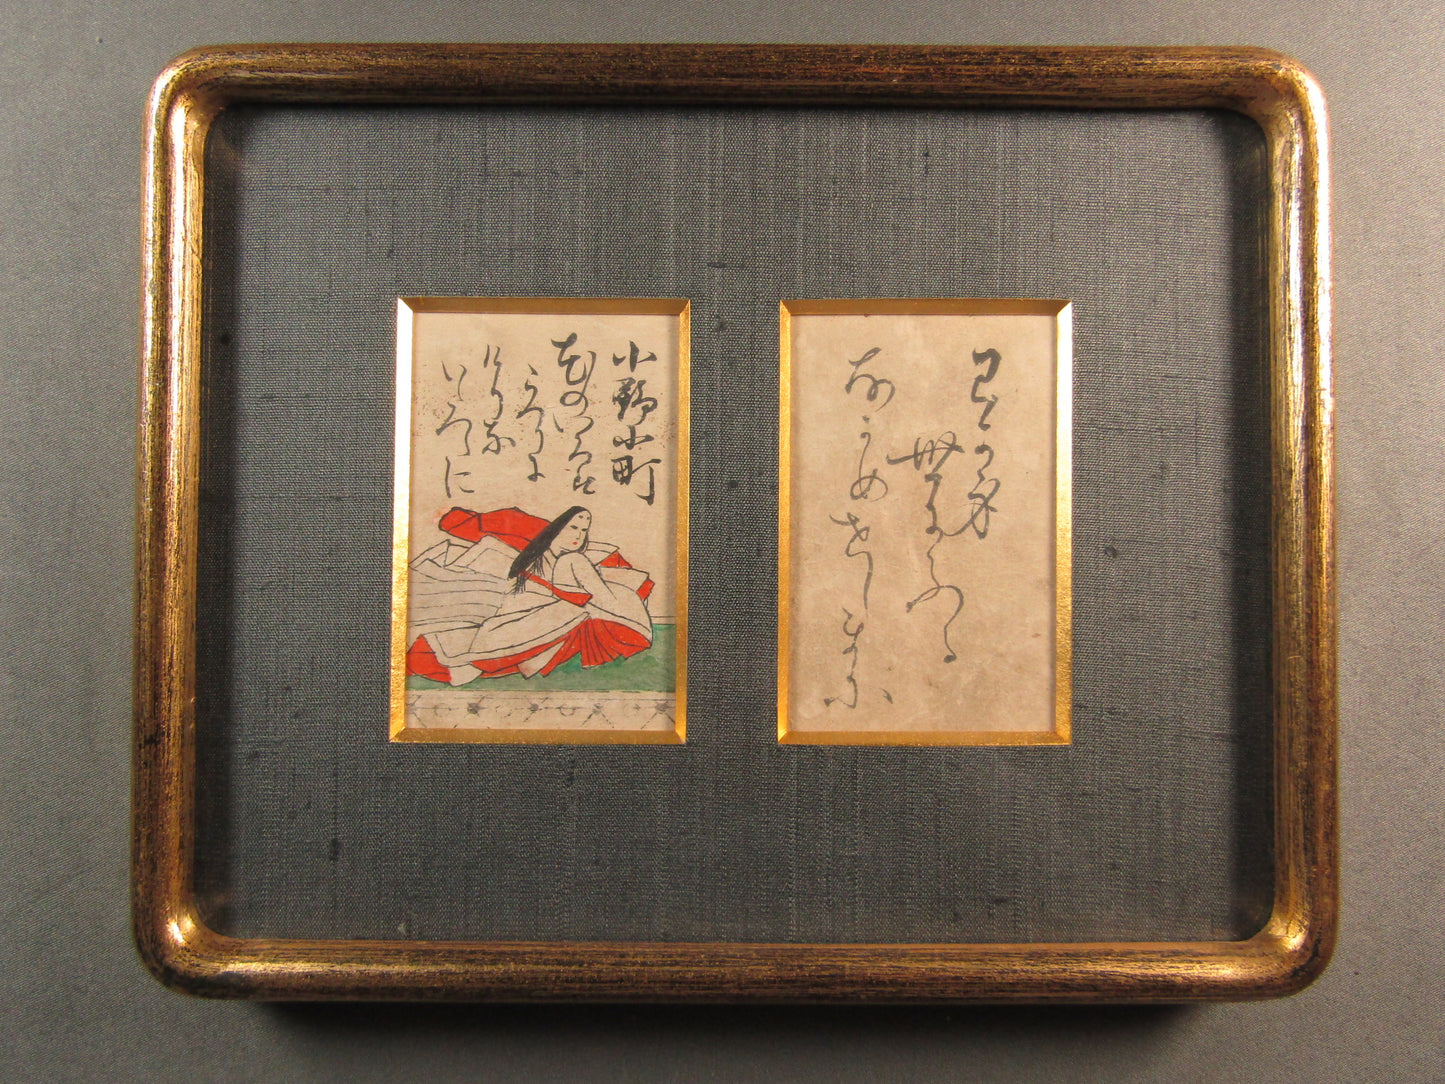 小野小町
花のいろは
うつりに
けりな
いたつらに
わか身
世にふる
なかめせしまに